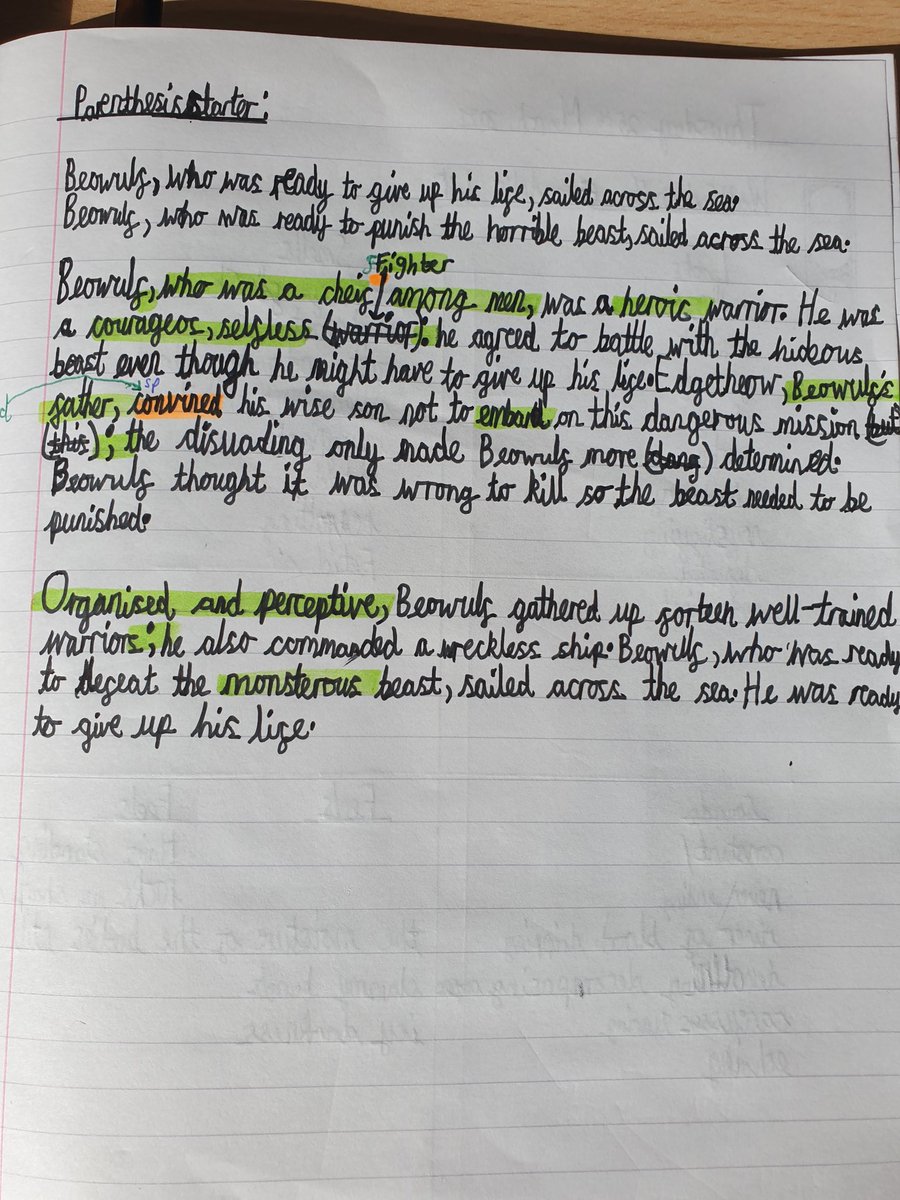 Parenthesis starter:
Beowulf, who was ready to give up his life, sailed across the sea.
Beowulf, who was ready to punish the horrible beast, sailed across the sea.
Fighter
Beowulf, who was a cheif / among men, was a heroic warrior. He was
a courageos, selfless (warrior): he agreed to battle with the hideous
beast even though he might have to give up his life. Edgetheow, Beowulf's
sp
father, convined his wise son not to embard on this dangerous mission (but
(this); the disuading only made Beowulf more (dang) determined.
Beowulf thought it was wrong to kill so the beast needed to be
punished.
Organised and perceptive, Beowulf gathered up forteen well-trained
warriors; he also commanded a wreckless ship. Beowulf, who was ready
to defeat the monsterous beast, sailed across the sea. He was ready
to give up his life.